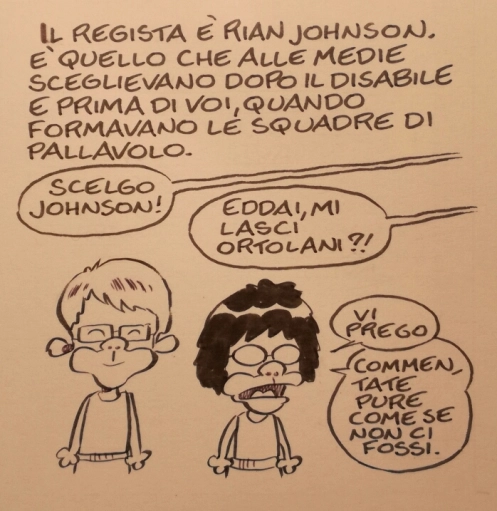 IL REGISTA È RIAN JOHNSON.
E' QUELLO CHE ALLE MEDIE
SCEGLIEVANO DOPO IL DISABILE
E PRIMA DI VOI, QUANDO
FORMAVANO LE SQUADRE DI
PALLAVOLO.
SCELGO
JOHNSON!
EDDAI, MI
LASCI
ORTOLANI?!
VI
PREGO
COMMEN,
TATE
PURE
COME SE
NON CI
FOSSI.